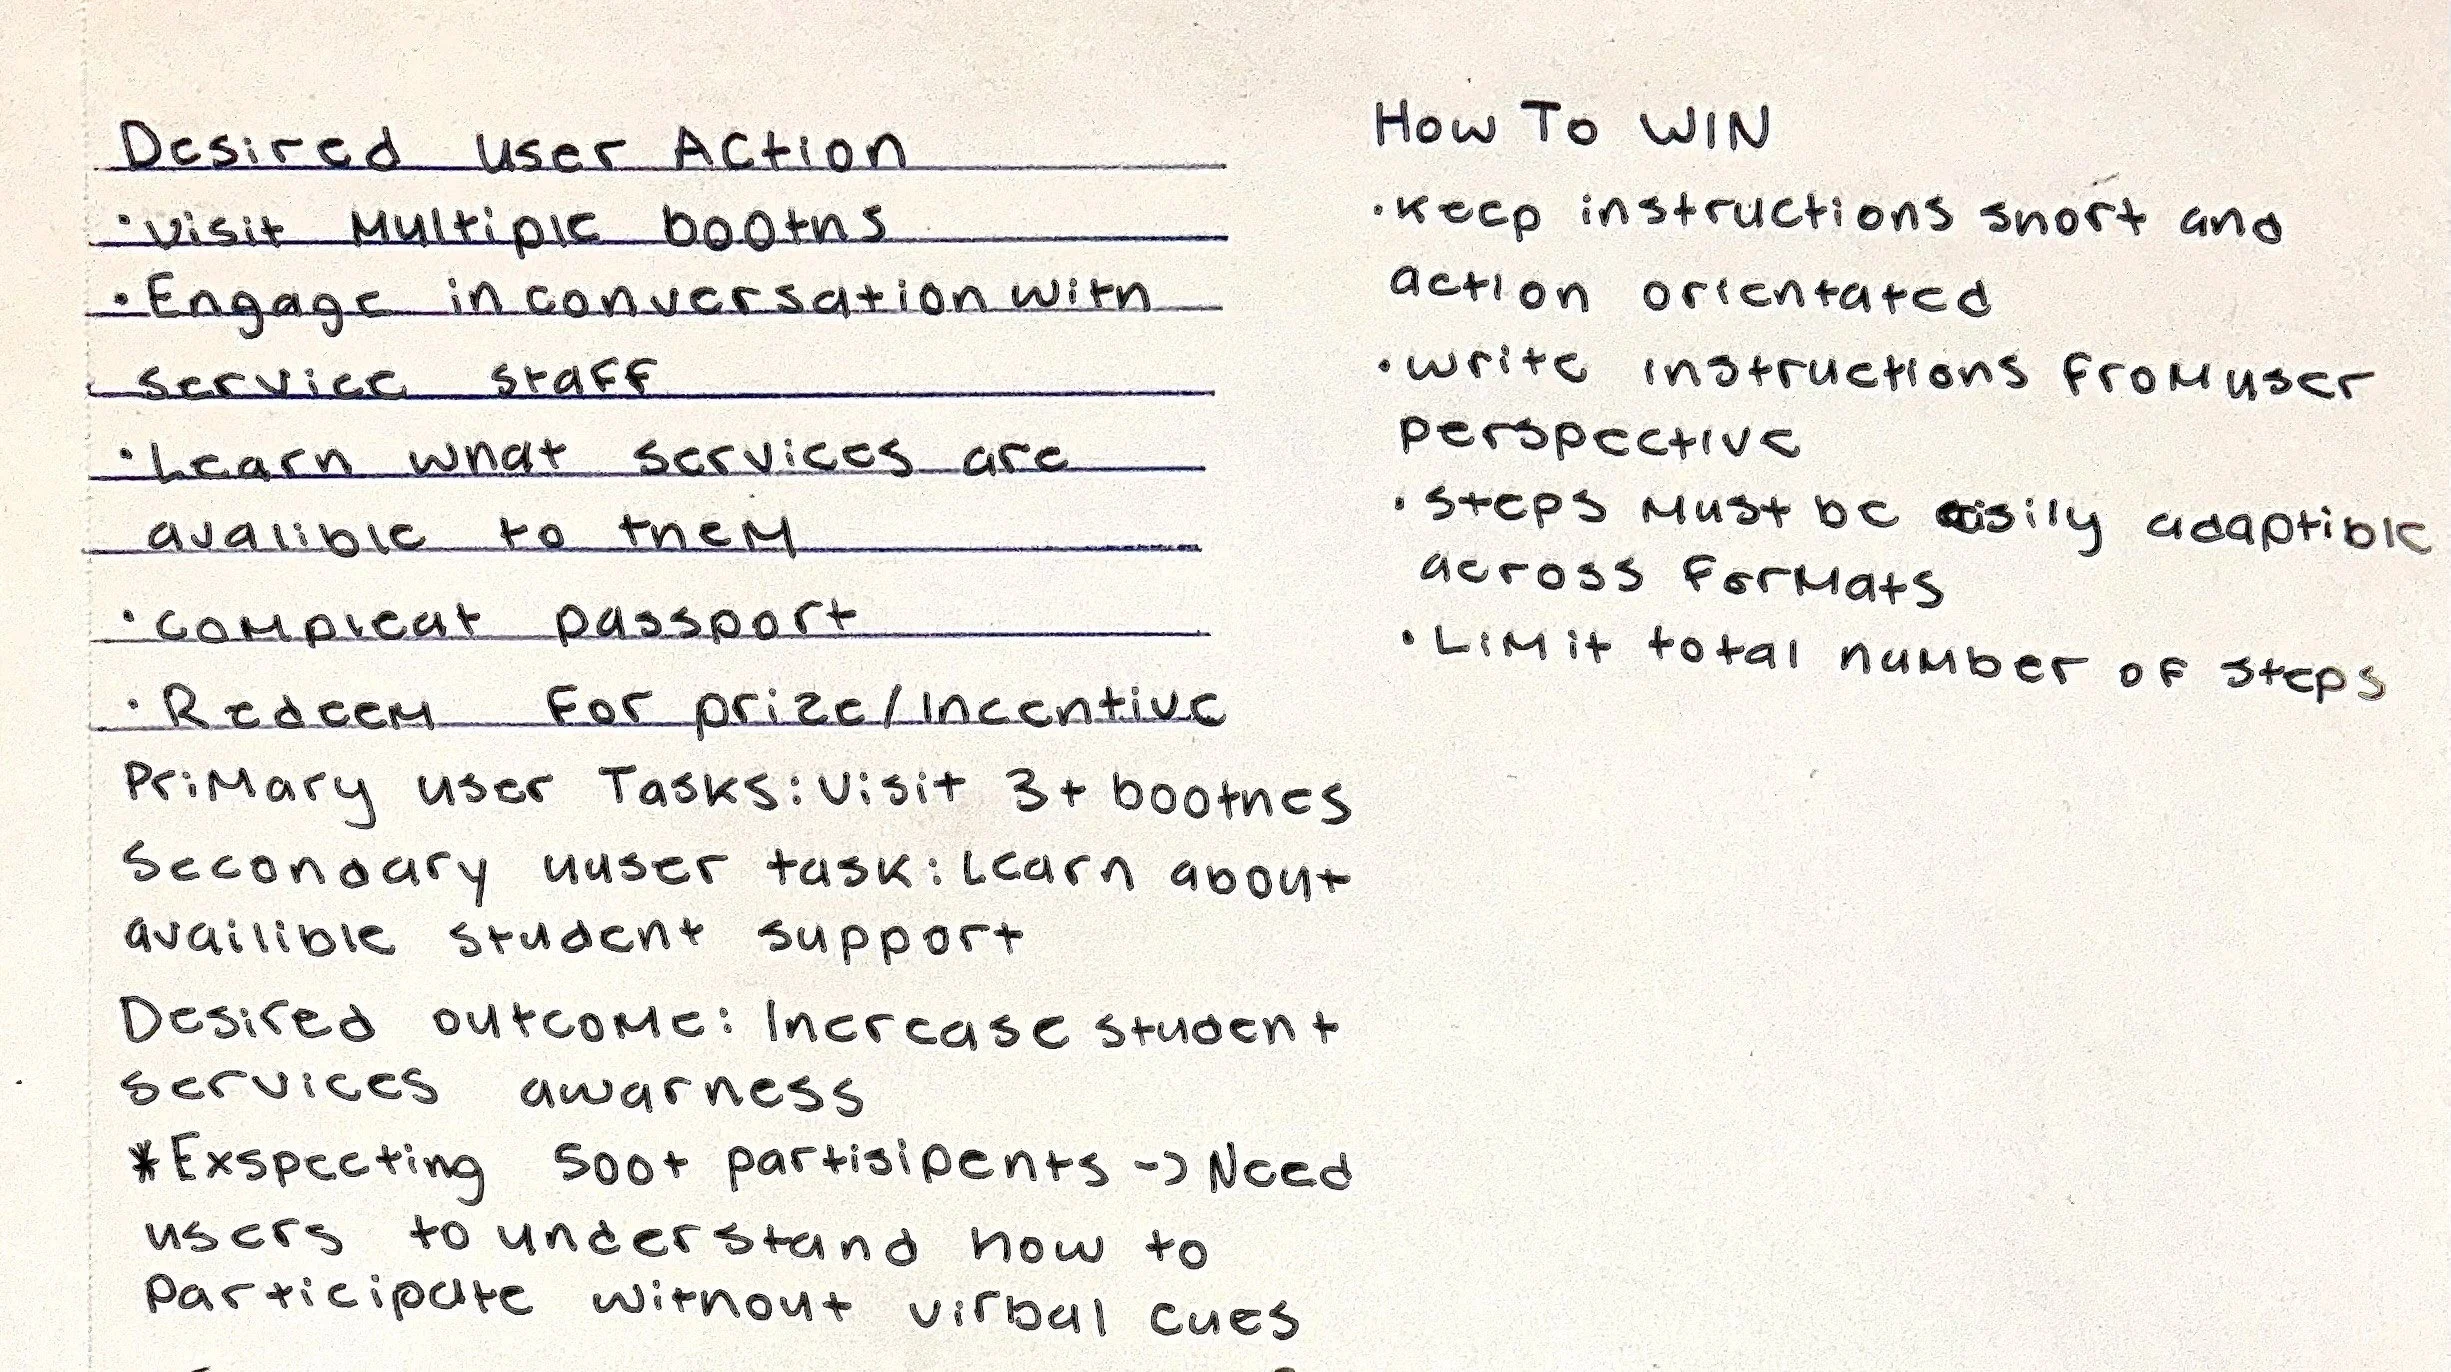 Desired user Action
• visit Multiple booths
• Engage in conversation with
service staff
• Learn what services are
avalible to them
• compleat passport
• Redeem for prize/Incentive
Primary user Tasks: visit 3+ boothes
Secondary uuser task: Learn about
availible student support
Desired outcome: Increase student
services awarness
*Exspecting 500+ partisipents -> Need
users to understand how to
Participate without virbal cues
How To WIN
• keep instructions short and
action orientated
• write instructions from user
perspective
• steps must be easily adaptible
across formats
• Limit total number of steps